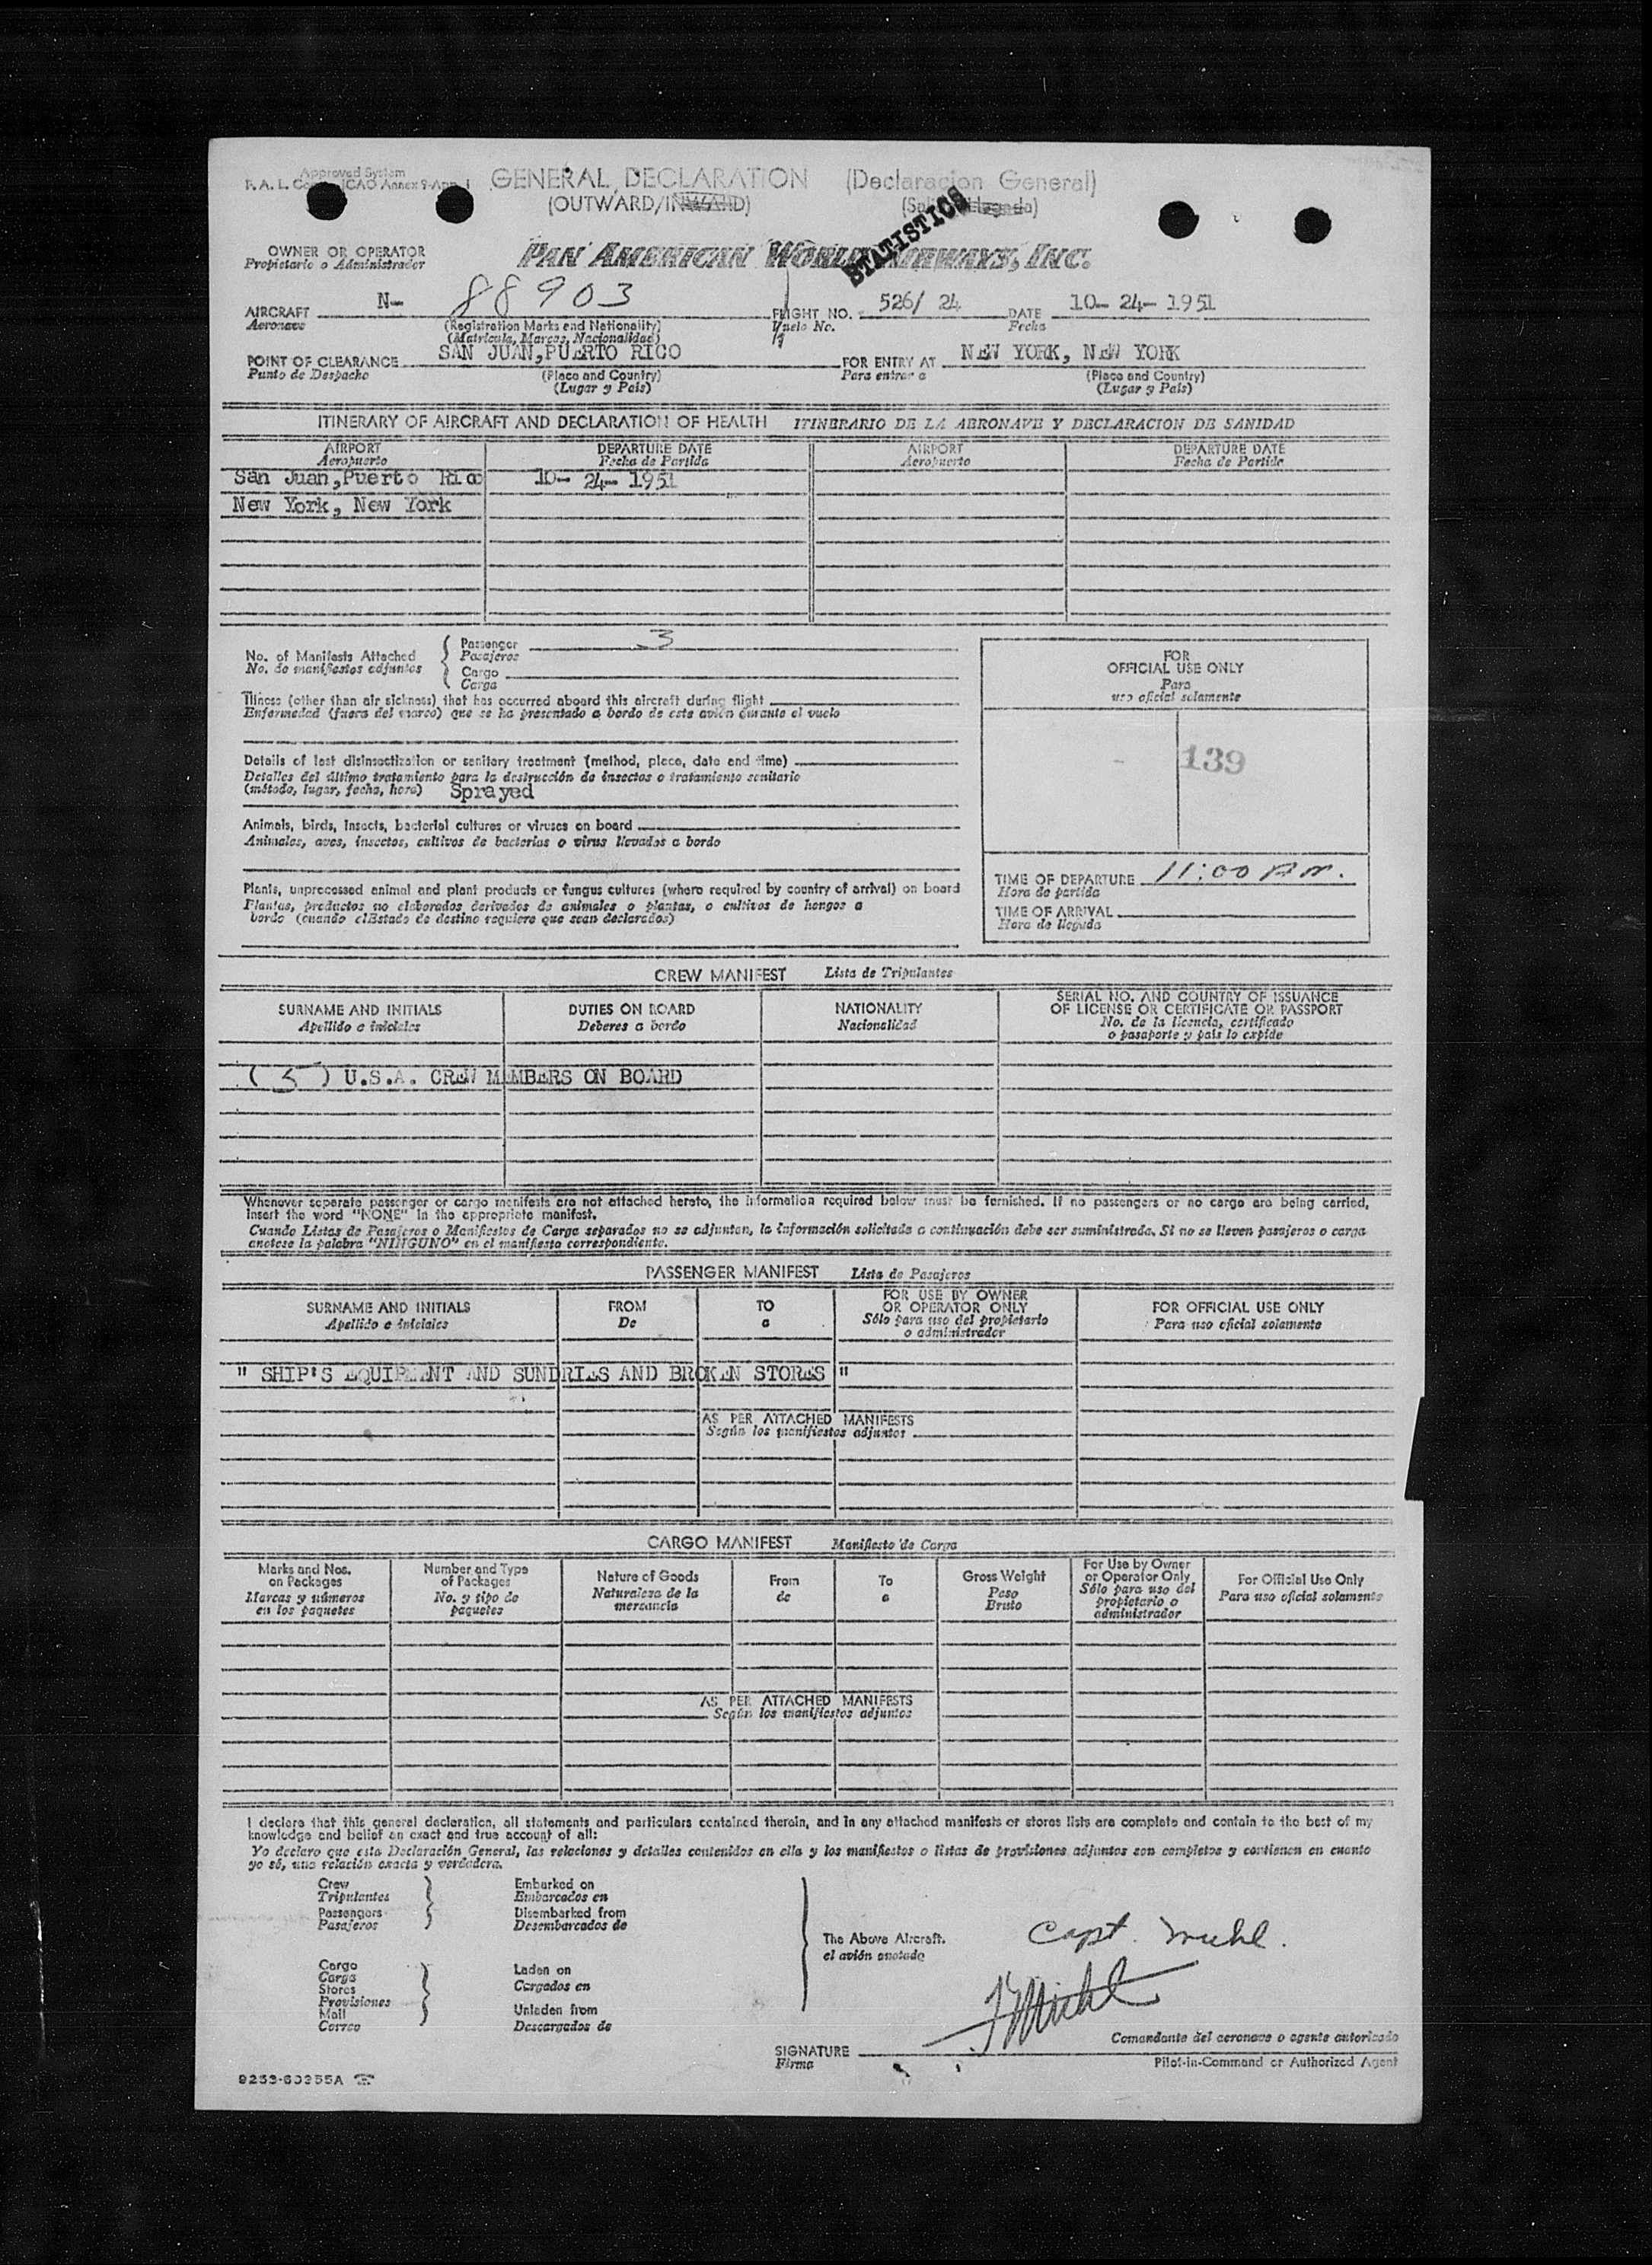 Approved System
F. A. L. ICAO Annex 9-App. 1
GENERAL DECLARATION (Declaracion General)
(OUTWARD/INWARD)
STATISTICS
OWNER OR OPERATOR
Propietario o Administrador
PAN AMERICAN WORLD AIRWAYS, INC.
AIRCRAFT N- 88903 FLIGHT NO. 526/ 24 DATE 10- 24- 1951
Aeronave (Registration Marks and Nationality) Vuelo No. Fecha
(Matricula, Marcas, Nacionalidad)
POINT OF CLEARANCE SAN JUAN, PUERTO RICO FOR ENTRY AT NEW YORK, NEW YORK
Punto de Despacho (Place and Country) Para entrar a (Place and Country)
(Lugar y Pais) (Lugar y Pais)
ITINERARY OF AIRCRAFT AND DECLARATION OF HEALTH ITINERARIO DE LA AERONAVE Y DECLARACION DE SANIDAD
AIRPORT DEPARTURE DATE AIRPORT DEPARTURE DATE
Aeropuerto Fecha de Partida Aeropuerto Fecha de Partida
San Juan, Puerto Rico 10- 24- 1951
New York, New York
No. of Manifests Attached
No. de manifiestos adjuntos
Passenger 3
Pasajeros
Cargo
Carga
Illness (other than air sickness) that has occurred aboard this aircraft during flight
Enfermedad (fuera del mareo) que se ha presentado a bordo de este avión durante el vuelo
Details of last disinsectization or sanitary treatment (method, place, date and time)
Detalles del último tratamiento para la destrucción de insectos o tratamiento sanitario
(método, lugar, fecha, hora) Sprayed
Animals, birds, insects, bacterial cultures or viruses on board
Animales, aves, insectos, cultivos de bacterias o virus llevados a bordo
Plants, unprocessed animal and plant products or fungus cultures (where required by country of arrival) on board
Plantas, productos no elaborados derivados de animales o plantas, o cultivos de hongos a
bordo (cuando el Estado de destino requiere que sean declarados)
FOR
OFFICIAL USE ONLY
Para
uso oficial solamente
139
TIME OF DEPARTURE 11:00 P.m.
Hora de partida
TIME OF ARRIVAL
Hora de llegada
CREW MANIFEST Lista de Tripulantes
SURNAME AND INITIALS DUTIES ON BOARD NATIONALITY SERIAL NO. AND COUNTRY OF ISSUANCE
OF LICENSE OR CERTIFICATE OR PASSPORT
Apellido e iniciales Deberes a bordo Nacionalidad No. de la licencia, certificado
o pasaporte y pais lo expide
( 5 ) U.S.A. CREW MEMBERS ON BOARD
Whenever separate passenger or cargo manifests are not attached hereto, the information required below must be furnished. If no passengers or no cargo are being carried,
insert the word "NONE" in the appropriate manifest.
Cuando Listas de Pasajeros o Manifiestos de Carga separados no se adjunten, la información solicitada a continuación debe ser suministrada. Si no se lleven pasajeros o carga
anotese la palabra "NINGUNO" en el manifiesto correspondiente.
PASSENGER MANIFEST Lista de Pasajeros
SURNAME AND INITIALS FROM TO FOR USE BY OWNER
OR OPERATOR ONLY FOR OFFICIAL USE ONLY
Apellido e iniciales De a Sólo para uso del propietario
o administrador Para uso oficial solamente
" SHIP'S EQUIPMENT AND SUNDRIES AND BROKEN STORES "
AS PER ATTACHED MANIFESTS
Según los manifiestos adjuntos
CARGO MANIFEST Manifiesto de Carga
Marks and Nos.
on Packages
Marcas y números
en los paquetes
Number and Type
of Packages
No. y tipo de
paquetes
Nature of Goods
Naturaleza de la
mercancia
From
de
To
a
Gross Weight
Peso
Bruto
For Use by Owner
or Operator Only
Sólo para uso del
propietario o
administrador
For Official Use Only
Para uso oficial solamente
AS PER ATTACHED MANIFESTS
Según los manifiestos adjuntos
I declare that this general declaration, all statements and particulars contained therein, and in any attached manifests or stores lists are complete and contain to the best of my
knowledge and belief an exact and true account of all:
Yo declaro que esta Declaración General, las relaciones y detalles contenidos en ella y los manifiestos o listas de provisiones adjuntos son completos y contienen en cuanto
yo sé, una relación exacta y verdadera.
Crew
Tripulantes
Passengers
Pasajeros
Embarked on
Embarcados en
Disembarked from
Desembarcados de
Cargo
Carga
Stores
Provisiones
Mail
Correo
Laden on
Cargados en
Unladen from
Descargados de
The Above Aircraft.
el avión anotado
Capt. Muhl.
F Muhl
SIGNATURE
Firma
Comandante del aeronave o agente autorizado
Pilot-in-Command or Authorized Agent
9253-60355A